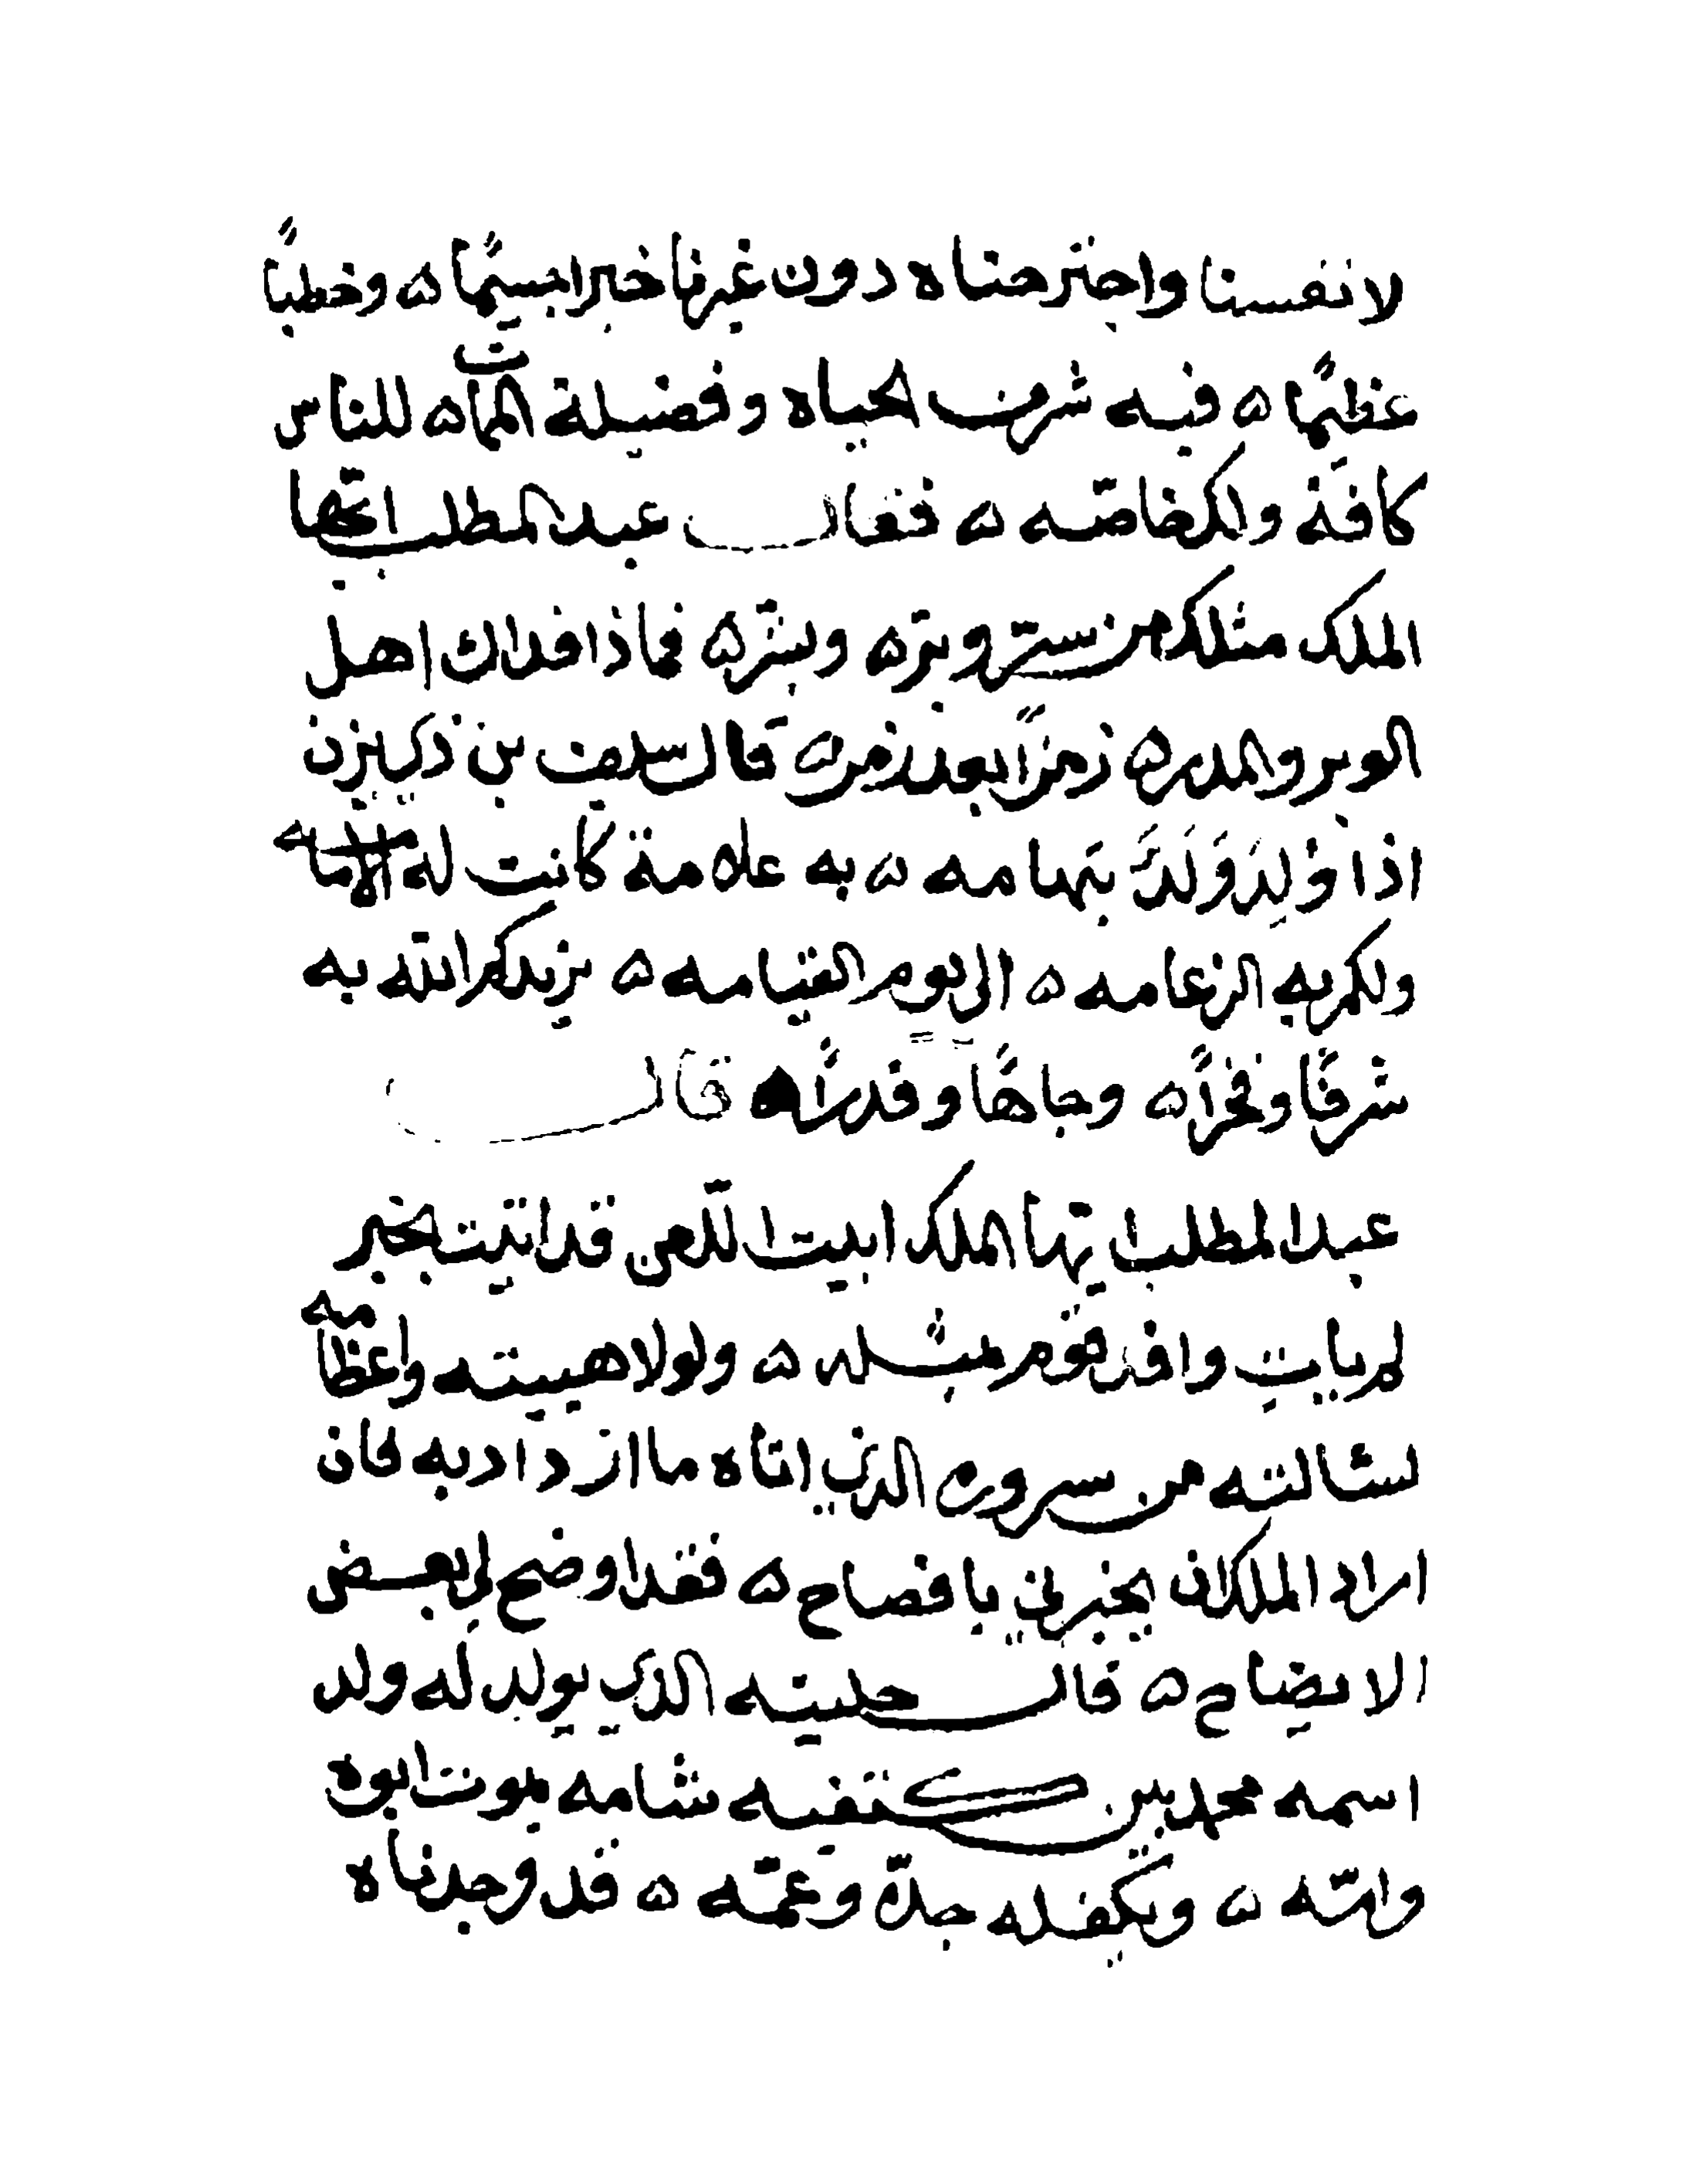 لانفسنا واجترحناه دون غيرنا خبرا جسيمًا ه وخطبًا
عظيمًا ه فيه شرف الحياه وفضيلة المماه ت للناس
كافة ولك خاصّه ه فقال عبد المطلب ايّها
الملك مثلك من ستر وبرّه وبشّره فماذا فداك اهل
الوبر والمدره زمرًا بعد زمره قال سيف بن ذي يزن
اذا وُلِدَ وَلَدٌ بتهامه ه به علامة كانت له الامامه
ولكم به الزعامه ه الى يوم القيامه ه يزيدكم الله به
شرفًا وفخرًا ه وجاهًا وقدرًا ه قال
عبد المطلب ايها الملك ابيت اللّعن قد اتيت بخبر
لم يات وافد قوم بمثله ه ولولا هيبته واعظامه
لسالته من سروره الذي اتاه ما ازداد به فان
اراد الملك ان يخبرني بافصاح ه فقد اوضح لي بعض
الايضاح ه قال حليته الذي يولد له ولد
اسمه محمد بين كتفيه شامه يموت ابوه
وامّه ه ويكفله جدّه وعمّه ه قد وجدناه